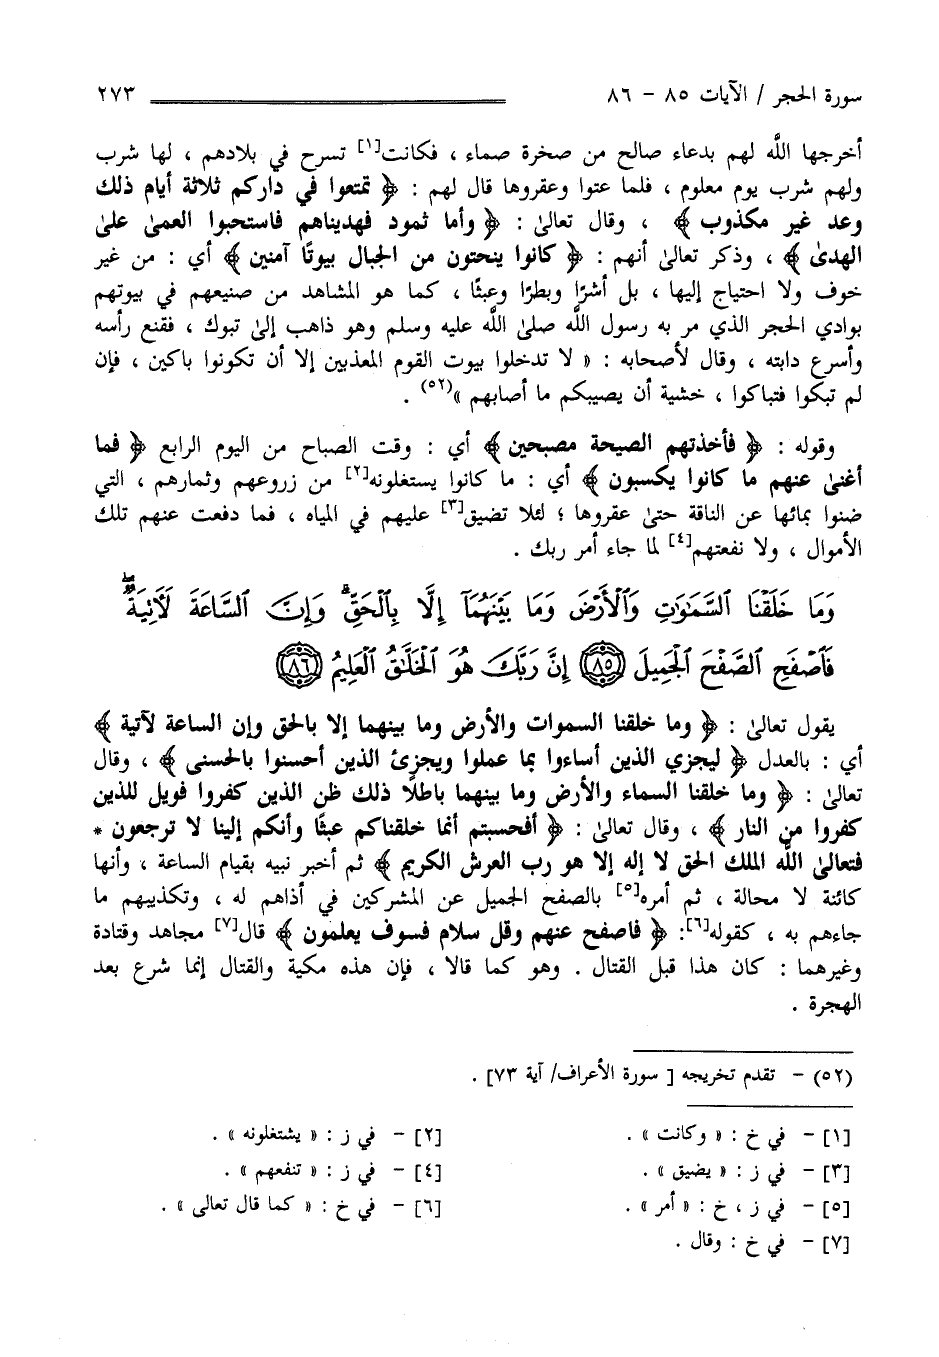 سورة الحجر / الآيات ٨٥ - ٨٦ ٢٧٣
أخرجها الله لهم بدعاء صالح من صخرة صماء ، فكانت[١] تسرح في بلادهم ، لها شرب
ولهم شرب يوم معلوم ، فلما عتوا وعقروها قال لهم : ﴿ تمتعوا في داركم ثلاثة أيام ذلك
وعد غير مكذوب ﴾ ، وقال تعالىٰ : ﴿ وأما ثمود فهديناهم فاستحبوا العمىٰ علىٰ
الهدىٰ ﴾ ، وذكر تعالىٰ أنهم : ﴿ كانوا ينحتون من الجبال بيوتًا آمنين ﴾ أي : من غير
خوف ولا احتياج إليها ، بل أشرًا وبطرًا وعبثًا ، كما هو المشاهد من صنيعهم في بيوتهم
بوادي الحجر الذي مر به رسول الله صلىٰ الله عليه وسلم وهو ذاهب إلىٰ تبوك ، فقنع رأسه
وأسرع دابته ، وقال لأصحابه : « لا تدخلوا بيوت القوم المعذبين إلا أن تكونوا باكين ، فإن
لم تبكوا فتباكوا ، خشية أن يصيبكم ما أصابهم »(٥٢) .
وقوله : ﴿ فأخذتهم الصيحة مصبحين ﴾ أي : وقت الصباح من اليوم الرابع ﴿ فما
أغنىٰ عنهم ما كانوا يكسبون ﴾ أي : ما كانوا يستغلونه[٢] من زروعهم وثمارهم ، التي
ضنوا بمائها عن الناقة حتىٰ عقروها ؛ لئلا تضيق[٣] عليهم في المياه ، فما دفعت عنهم تلك
الأموال ، ولا نفعتهم[٤] لما جاء أمر ربك .
وَمَا خَلَقْنَا ٱلسَّمَٰوَٰتِ وَٱلْأَرْضَ وَمَا بَيْنَهُمَآ إِلَّا بِٱلْحَقِّ ۗ وَإِنَّ ٱلسَّاعَةَ لَأٓتِيَةٌ ۖ
فَٱصْفَحِ ٱلصَّفْحَ ٱلْجَمِيلَ ﴿٨٥﴾ إِنَّ رَبَّكَ هُوَ ٱلْخَلَّٰقُ ٱلْعَلِيمُ ﴿٨٦﴾
يقول تعالىٰ : ﴿ وما خلقنا السموات والأرض وما بينهما إلا بالحق وإن الساعة لآتية ﴾
أي : بالعدل ﴿ ليجزي الذين أساءوا بما عملوا ويجزئ الذين أحسنوا بالحسنى ﴾ ، وقال
تعالىٰ : ﴿ وما خلقنا السماء والأرض وما بينهما باطلًا ذلك ظن الذين كفروا فويل للذين
كفروا من النار ﴾ ، وقال تعالىٰ : ﴿ أفحسبتم أنما خلقناكم عبثًا وأنكم إلينا لا ترجعون *
فتعالىٰ الله الملك الحق لا إله إلا هو رب العرش الكريم ﴾ ثم أخبر نبيه بقيام الساعة ، وأنها
كائنة لا محالة ، ثم أمره[٥] بالصفح الجميل عن المشركين في أذاهم له ، وتكذيبهم ما
جاءهم به ، كقوله[٦]: ﴿ فاصفح عنهم وقل سلام فسوف يعلمون ﴾ قال[٧] مجاهد وقتادة
وغيرهما : كان هذا قبل القتال . وهو كما قالا ، فإن هذه مكية والقتال إنما شرع بعد
الهجرة .
(٥٢) - تقدم تخريجه [ سورة الأعراف/ آية ٧٣] .
[١] - في خ : « وكانت » . [٢] - في ز : « يشتغلونه » .
[٣] - في ز : « يضيق » . [٤] - في ز : « تنفعهم » .
[٥] - في ز ، خ : « أمر » . [٦] - في خ : « كما قال تعالى » .
[٧] - في خ : وقال .